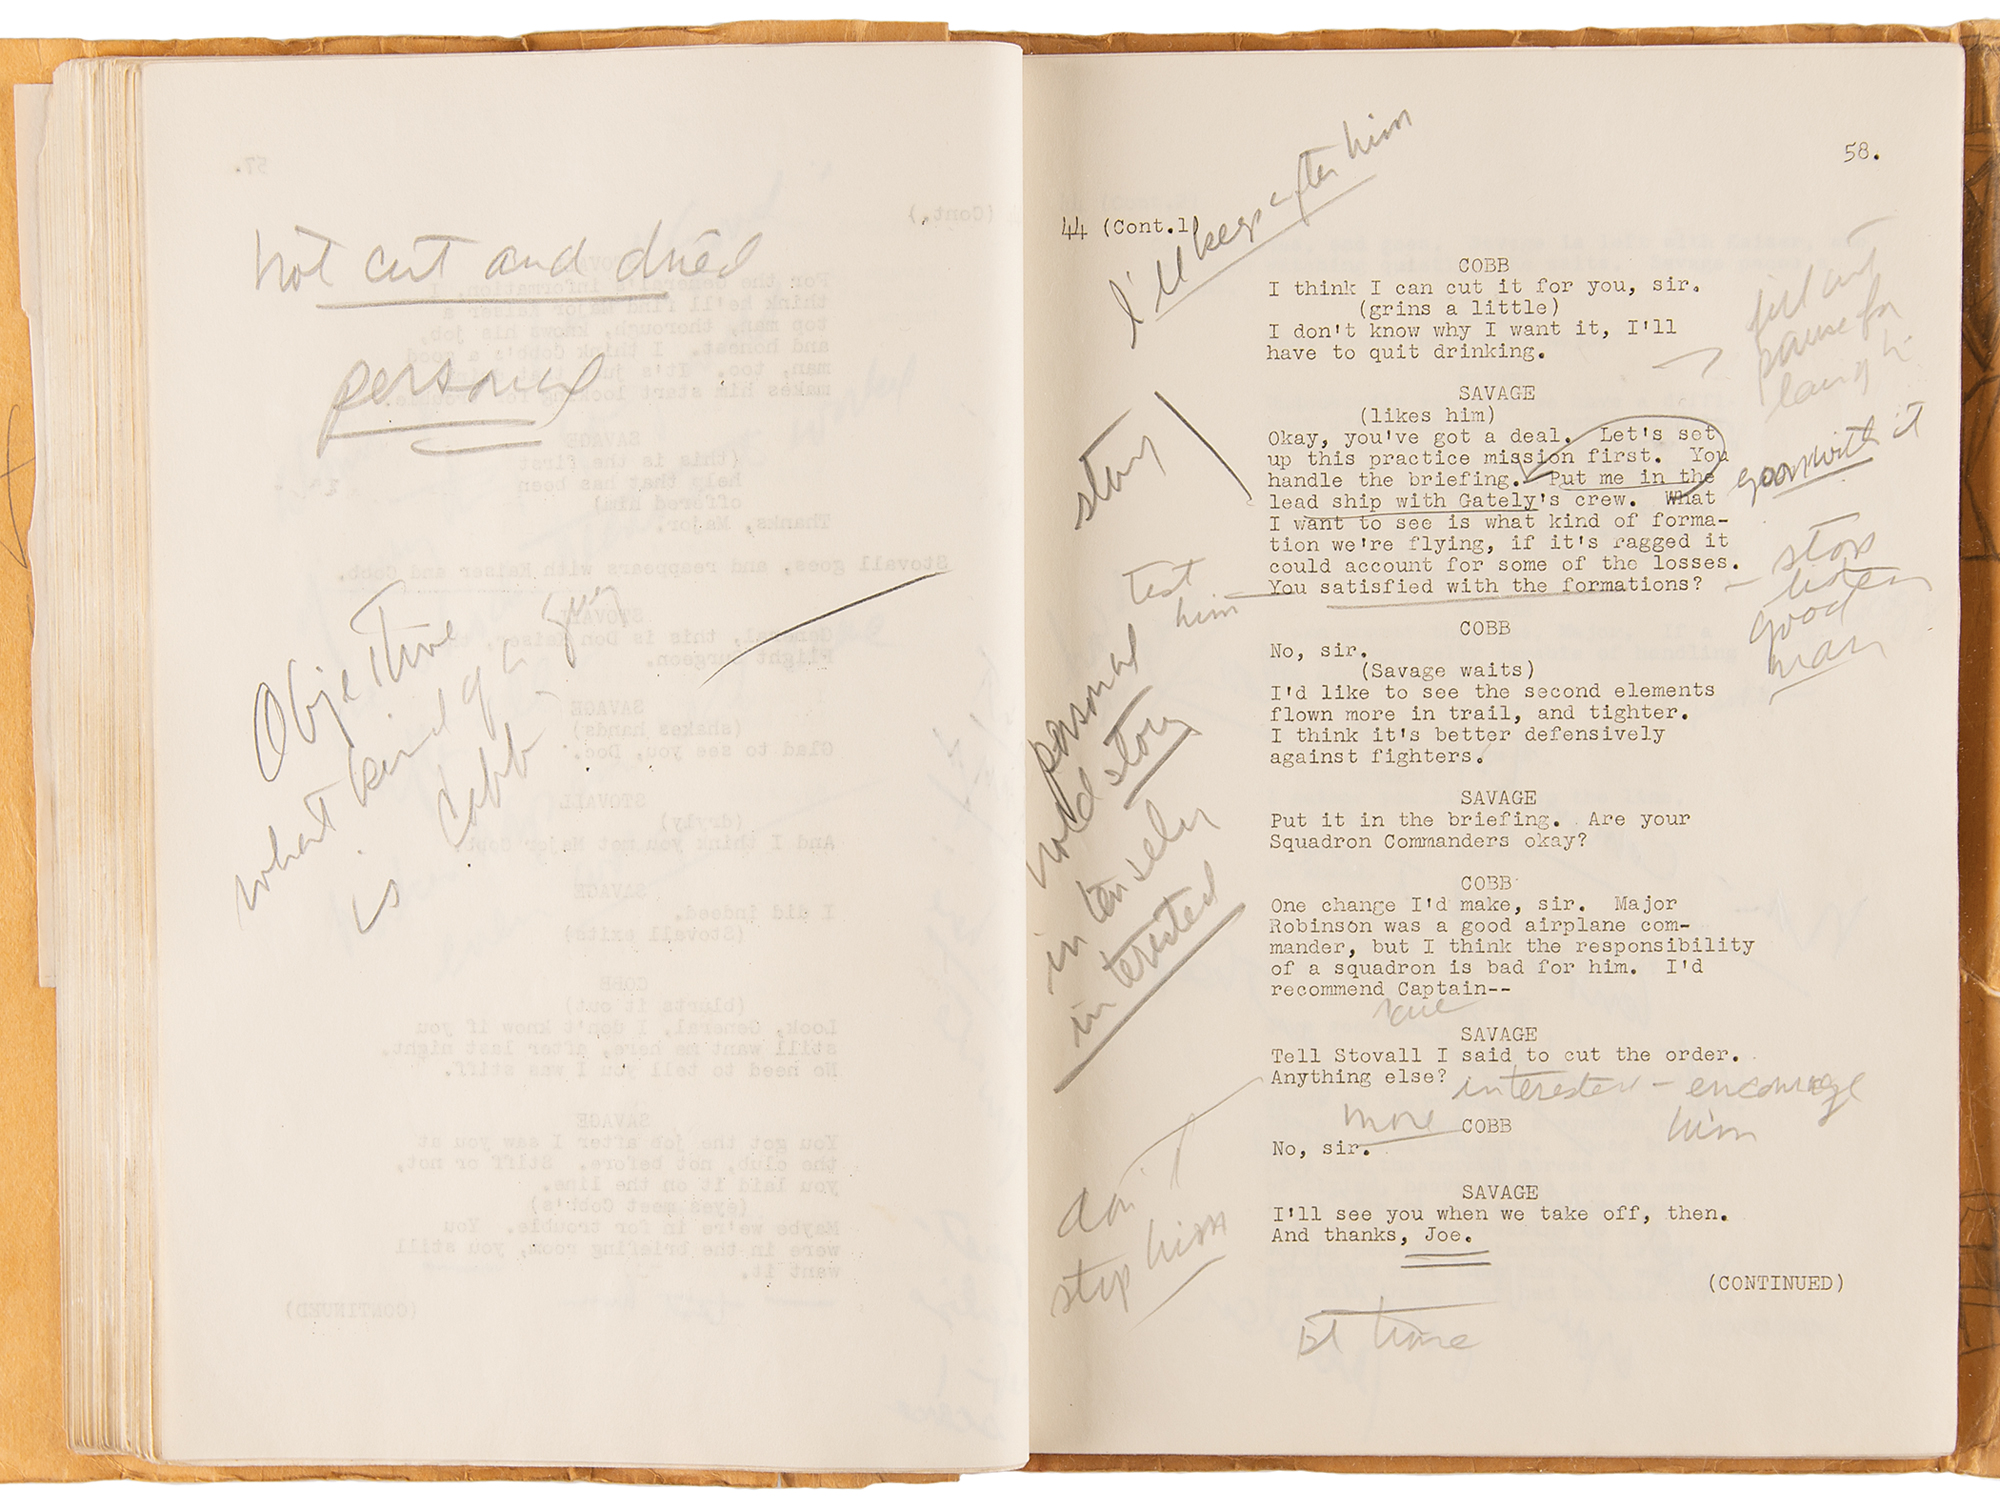 not cut and dried
personal
Objective
what kind of a guy
is Cobb
58.
I'll keep after him
44 (Cont.1)
COBB
I think I can cut it for you, sir.
(grins a little)
I don't know why I want it, I'll
have to quit drinking.
pause for
laugh
SAVAGE
(likes him)
Okay, you've got a deal. Let's set
up this practice mission first. You
handle the briefing. Put me in the
lead ship with Gately's crew. What
I want to see is what kind of forma-
tion we're flying, if it's ragged it
could account for some of the losses.
You satisfied with the formations?
story
goon with it
test
him
stops
listen
good
man
COBB
No, sir.
(Savage waits)
I'd like to see the second elements
flown more in trail, and tighter.
I think it's better defensively
against fighters.
personal
hold story
intensely
interested
SAVAGE
Put it in the briefing. Are your
Squadron Commanders okay?
COBB
One change I'd make, sir. Major
Robinson was a good airplane com-
mander, but I think the responsibility
of a squadron is bad for him. I'd
recommend Captain--
SAVAGE
Tell Stovall I said to cut the order.
Anything else?
interested - encourage
him
more
COBB
No, sir.
don't
stop him
SAVAGE
I'll see you when we take off, then.
And thanks, Joe.
(CONTINUED)
1st time